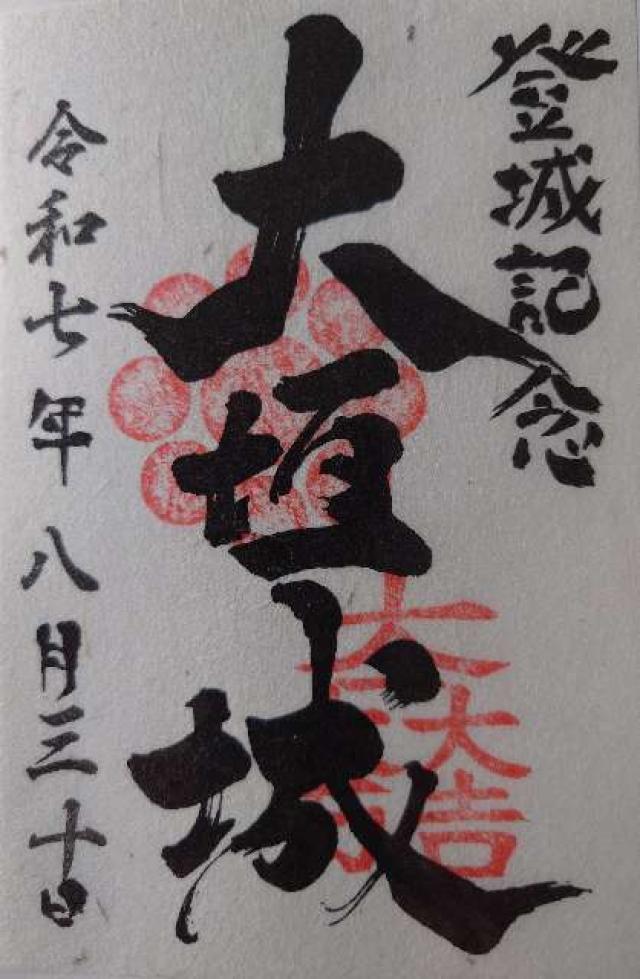 登城記念
大垣城
大一大万大吉
令和七年八月三十日